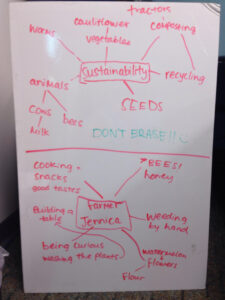 tractors
cauliflower
composting
worms
vegetables
Sustainability
recycling
animals
SEEDS
cows
bees
milk
DON'T ERASE!!
cooking -
snacks
good tastes
BEES!
honey
Farmer
Jennica
Building a
table
weeding
by hand
being curious
washing the plants
watermelon &
flowers
flour